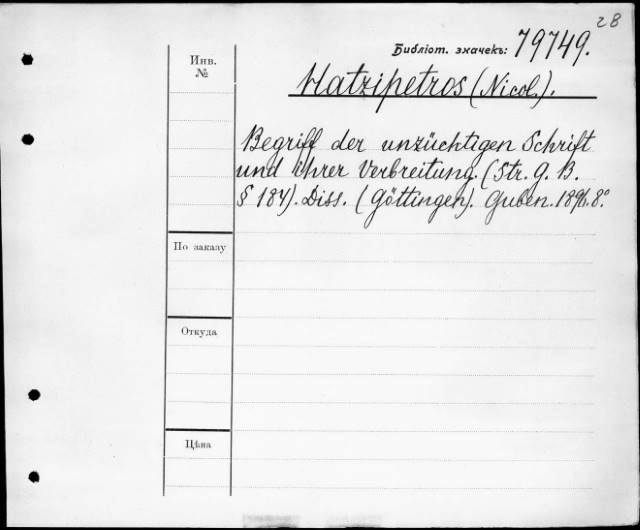 28
Библіот. значекъ: 79749.
Инв.
№
Hatzipetros (Nicol.).
Begriff der unzüchtigen Schrift
und ihrer Verbreitung. (Str. G. B.
§ 184). Diss. (Göttingen). Guben. 1896. 8°
По заказу
Откуда
Цѣна